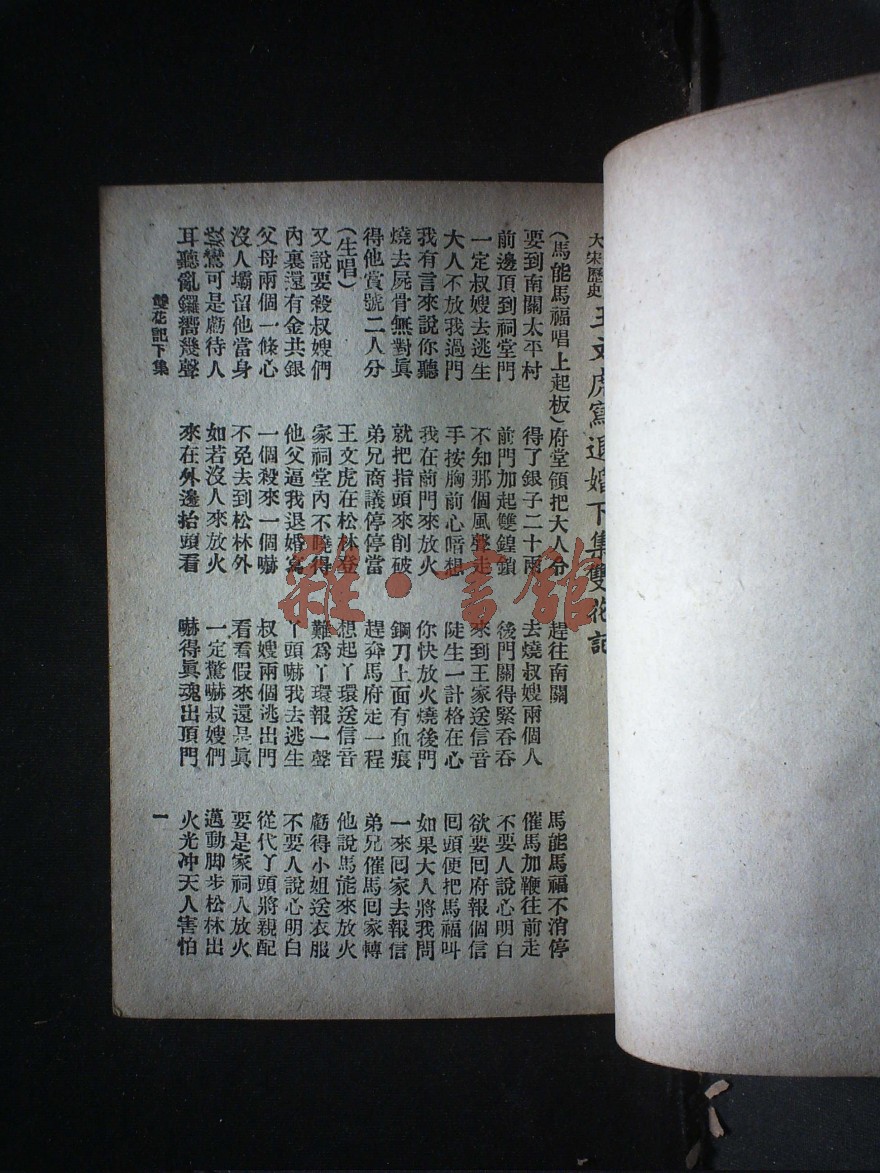 大宋歷史 王文虎寫退婚下集雙花記
(馬能馬福唱上起板)府堂領把大人分 趕往南關 馬能馬福不消停
要到南關太平村 得了銀子二十兩 去燒叔嫂兩個人 催馬加鞭往前走
前邊頂到祠堂門 前門加起雙鍠鎖 後門關得緊吞吞 不要人說心明白
一定叔嫂去逃生 不知那個風聲走 來到王家送信音 欲要囘府報個信
大人不放我過門 手按胸前心暗想 陡生一計格在心 囘頭便把馬福叫
我有言來說你聽 我在前門來放火 你快放火燒後門 如果大人將我問
燒去屍骨無對眞 就把指頭來削破 鋼刀上面有血痕 一來囘家去報信
得他賞號二人分 弟兄商議停停當 趕奔馬府走一程 弟兄催馬囘家轉
(生唱) 王文虎在松林登 想起丫環送信音 他說馬能來放火
又說要殺叔嫂們 家祠堂內不曉得 難爲丫環報一聲 虧得小姐送衣服
內裏還有金共銀 他父逼我退婚寫 丫頭嚇我去逃生 不要人說心明白
父母兩個一條心 一個殺來一個嚇 叔嫂兩個逃出門 從代丫頭將親配
沒人壩留他當身 不免去到松林外 看看假來還是眞 要是家祠人放火
鴛可是虧待人 如若沒人來放火 一定驚嚇叔嫂們 邁動脚步松林出
耳聽亂鑼嚮幾聲 來在外邊抬頭看 嚇得眞魂出頂門 火光冲天人害怕
雙花記下集 一
雜·書館